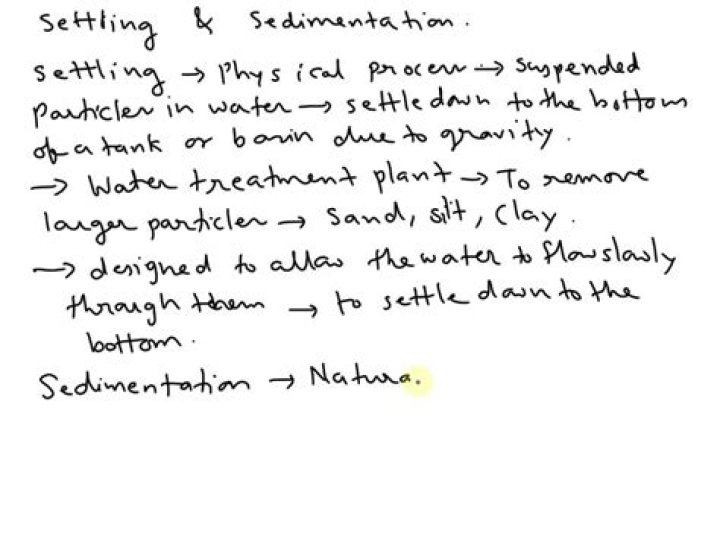 Settling & Sedimentation.
Settling → Physical process → suspended
particles in water → settle down to the bottom
of a tank or basin due to gravity.
→ Water treatment plant → To remove
larger particles → Sand, silt, clay.
→ designed to allow the water to flow slowly
through them → to settle down to the
bottom.
Sedimentation → Natura.